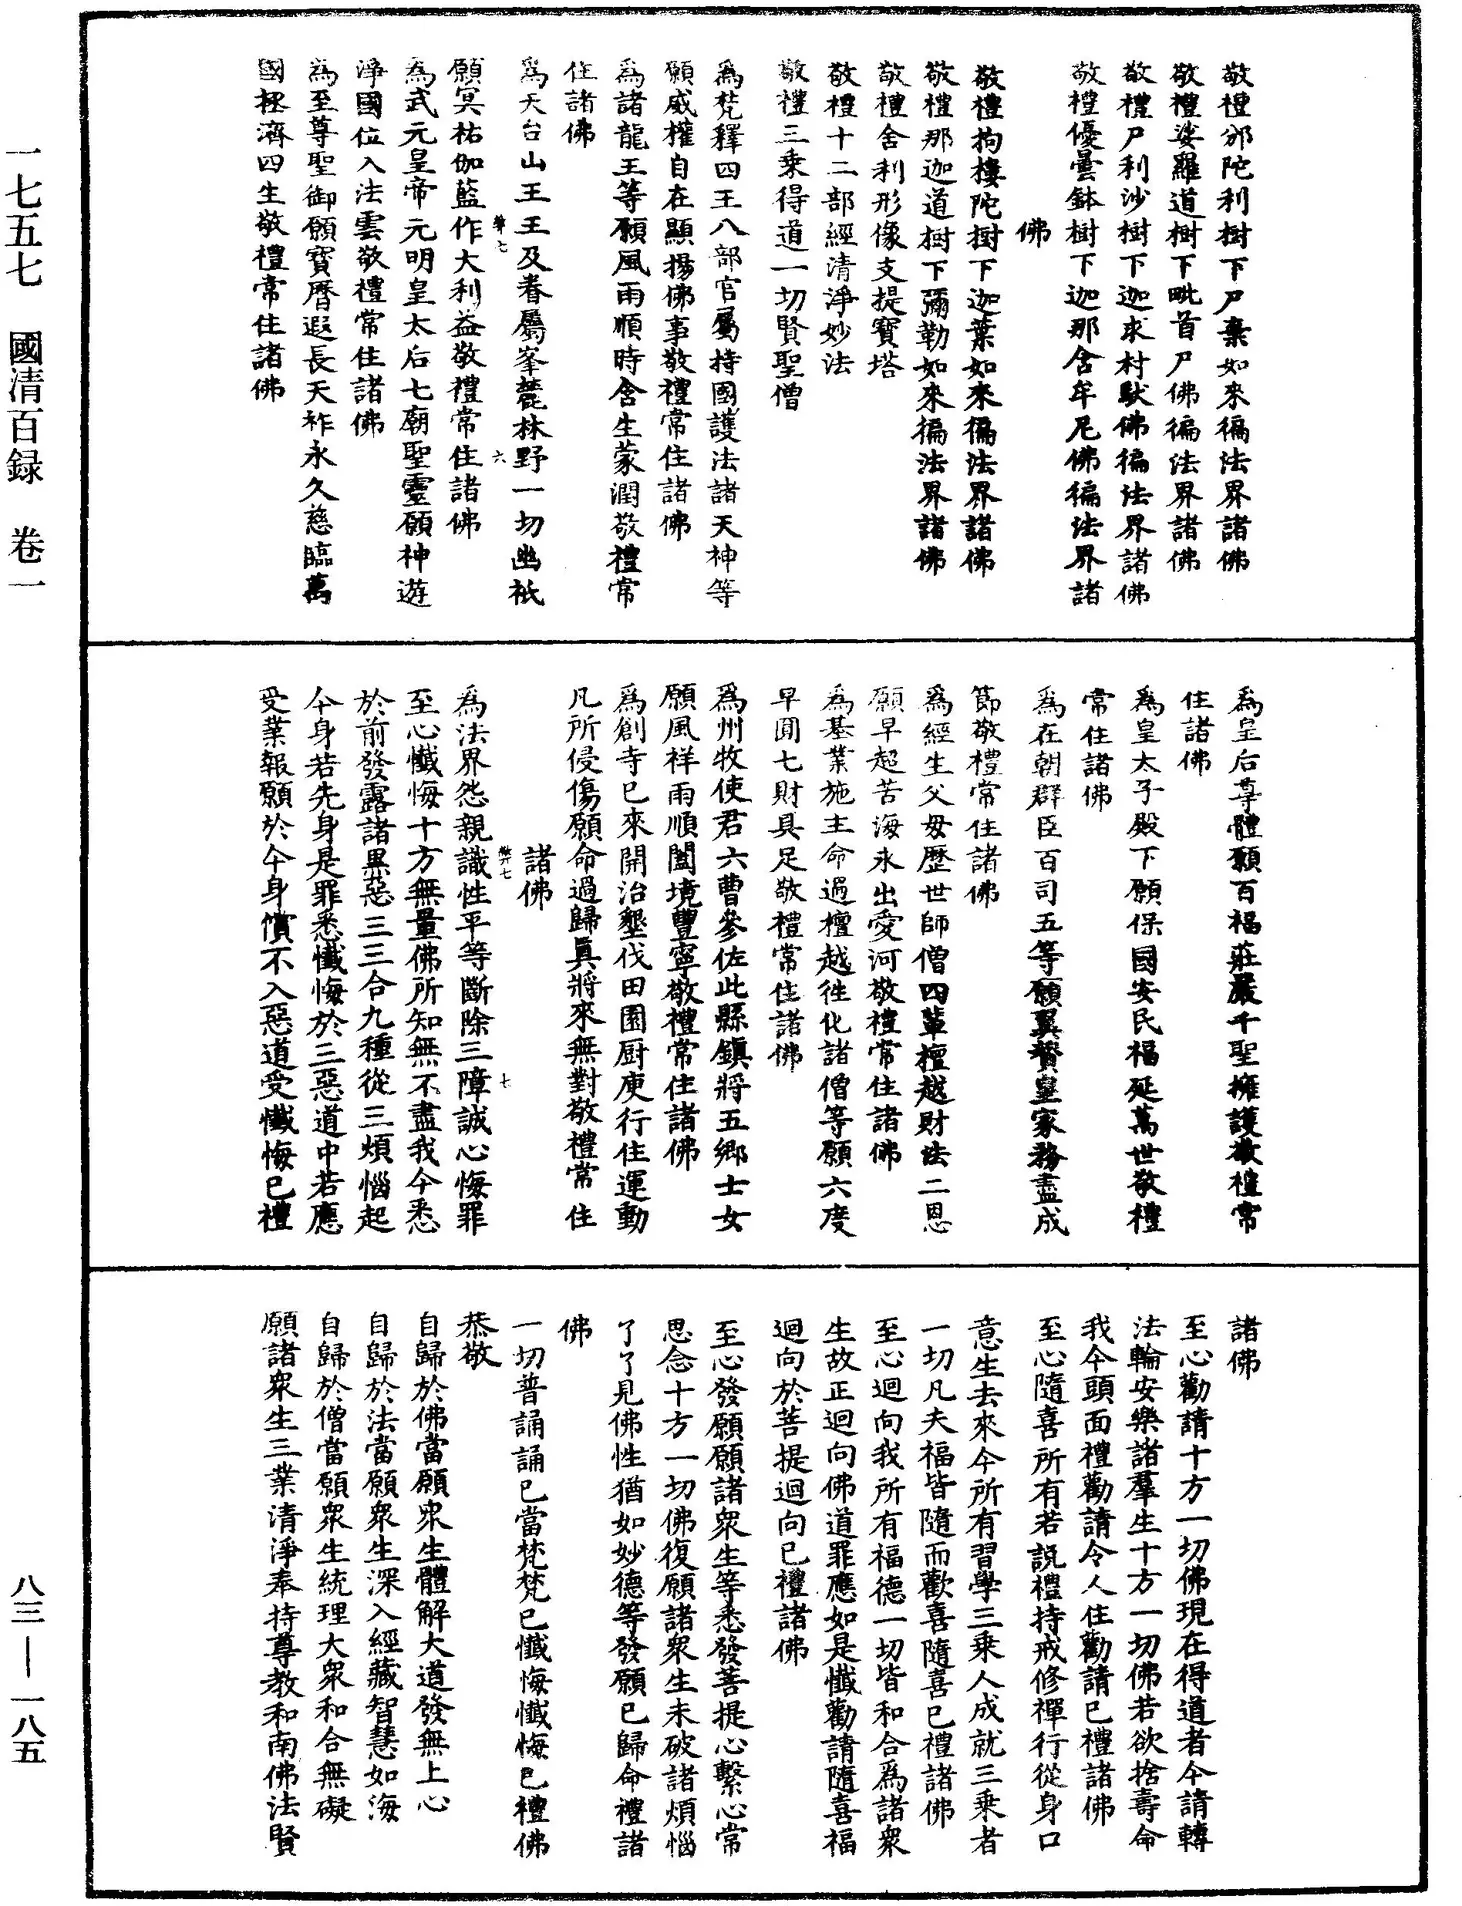 敬禮邠陀利樹下尸棄如來徧法界諸佛
敬禮娑羅道樹下毗首尸佛徧法界諸佛
敬禮尸利沙樹下迦求村馱佛徧法界諸佛
敬禮優曇鉢樹下迦那含牟尼佛徧法界諸
佛
敬禮拘樓陀樹下迦葉如來徧法界諸佛
敬禮那迦道樹下彌勒如來徧法界諸佛
敬禮舍利形像支提寶塔
敬禮十二部經清淨妙法
敬禮三乘得道一切賢聖僧
為梵釋四王八部官屬持國護法諸天神等
願威權自在顯揚佛事敬禮常住諸佛
為諸龍王等願風雨順時含生蒙潤敬禮常
住諸佛
為天台山王王及眷屬峯麓林野一切幽祇
願冥祐伽藍作大利益敬禮常住諸佛
為武元皇帝元明皇太后七廟聖靈願神遊
淨國位入法雲敬禮常住諸佛
為至尊聖御願寶曆遐長天祚永久慈臨萬
國拯濟四生敬禮常住諸佛
為皇后尊體願百福莊嚴千聖擁護敬禮常
住諸佛
為皇太子殿下願保國安民福延萬世敬禮
常住諸佛
為在朝群臣百司五等願翼贊皇家務盡成
節敬禮常住諸佛
為經生父母歷世師僧四輩檀越財法二恩
願早超苦海永出愛河敬禮常住諸佛
為基業施主命過檀越徃化諸僧等願六度
早圓七財具足敬禮常住諸佛
為州牧使君六曹參佐此縣鎮將五鄉士女
願風祥雨順闔境豐寧敬禮常住諸佛
為創寺已來開治墾伐田園厨庾行住運動
凡所侵傷願命過歸真將來無對敬禮常住
諸佛
為法界怨親識性平等斷除三障誠心悔罪
至心懺悔十方無量佛所知無不盡我今悉
於前發露諸黑惡三三合九種從三煩惱起
今身若先身是罪悉懺悔於三惡道中若應
受業報願於今身償不入惡道受懺悔已禮
諸佛
至心勸請十方一切佛現在得道者今請轉
法輪安樂諸羣生十方一切佛若欲捨壽命
我今頭面禮勸請令人住勸請已禮諸佛
至心隨喜所有若說禮持戒修禪行從身口
意生去來今所有習學三乘人成就三乘者
一切凡夫福皆隨而歡喜隨喜已禮諸佛
至心迴向我所有福德一切皆和合為諸衆
生故正迴向佛道罪應如是懺勸請隨喜福
迴向於菩提迴向已禮諸佛
至心發願願諸衆生等悉發菩提心繫心常
思念十方一切佛復願諸衆生未破諸煩惱
了了見佛性猶如妙德等發願已歸命禮諸
佛
一切普誦誦已當梵梵已懺悔懺悔已禮佛
恭敬
自歸於佛當願衆生體解大道發無上心
自歸於法當願衆生深入經藏智慧如海
自歸於僧當願衆生統理大衆和合無礙
願諸衆生三業清淨奉持尊教和南佛法賢
一七五七 國清百録 卷一
八三—一八五